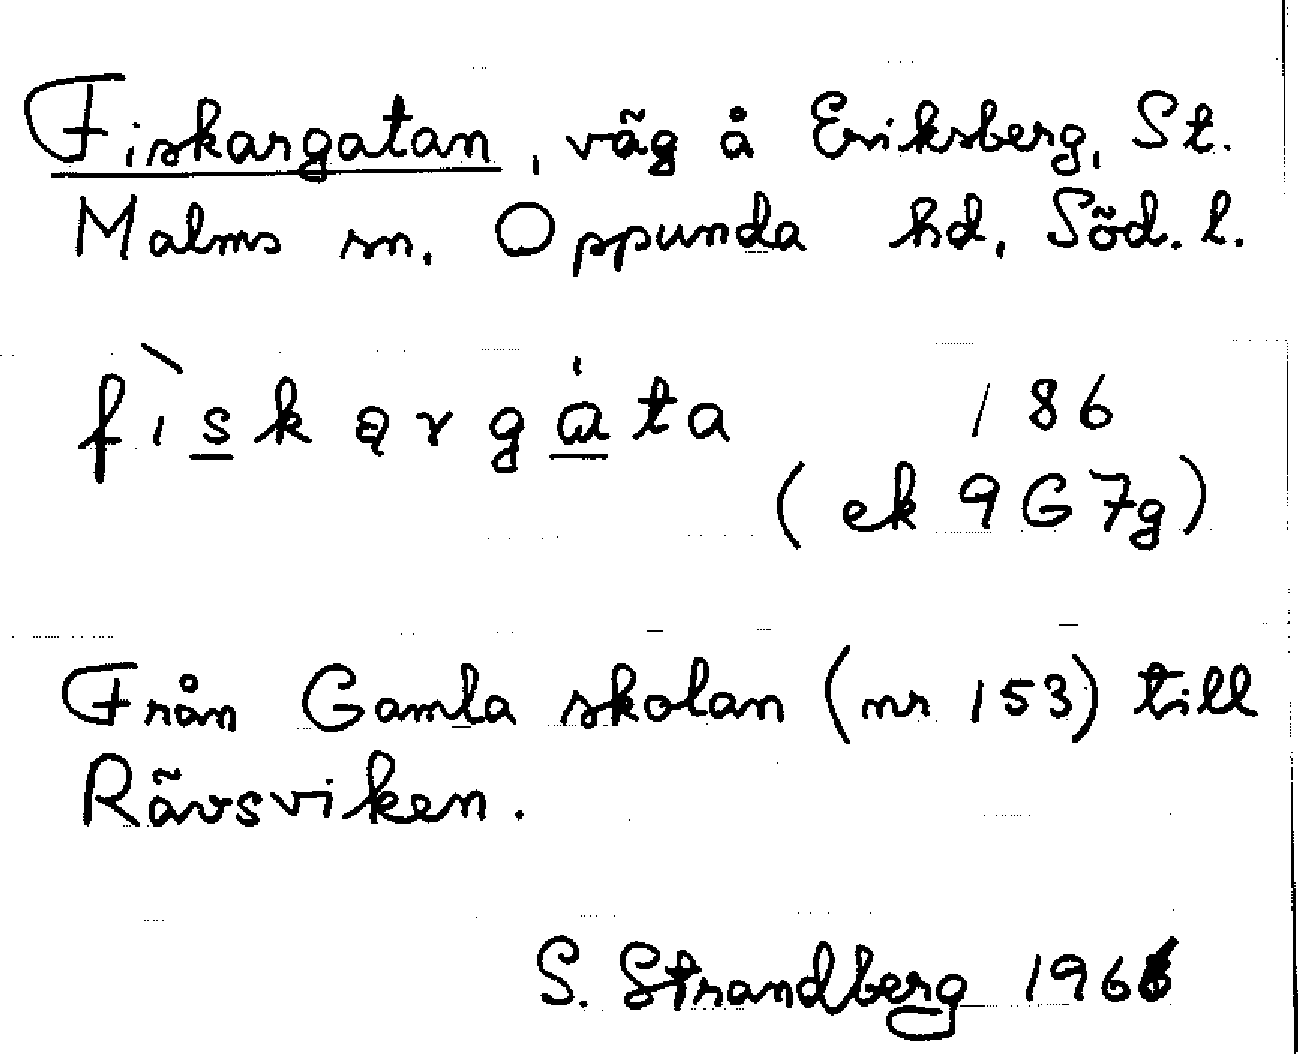 Fiskargatan, väg å Eriksberg, St.
Malms sn, Oppunda hd, Söd. l.
fìskąrgàta 186
(ek 9G7g)
Från Gamla skolan (nr 153) till
Rävsviken.
S. Strandberg 1966